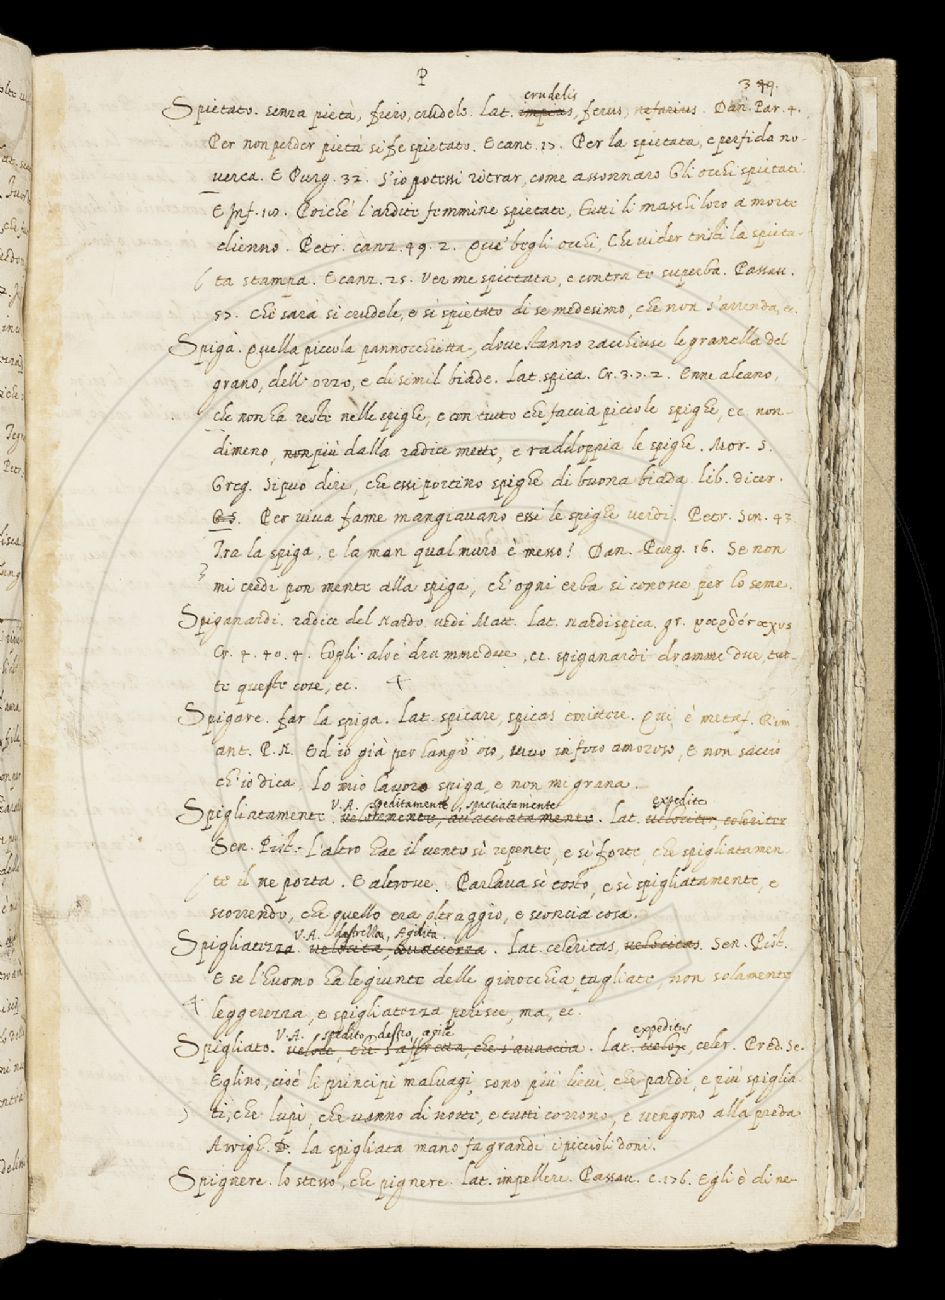 P
349.
Spietato. senza pietà, fiero, crudele. Lat. crudelis impius, ferus, nefarius. Dan. Par. 4.
Per non perder pietà si fe spietato. E cant. 17. Per la spietata, e perfida no-
verca. E Purg. 32. S'io potessi ritrar, come assonnaro Gli occhi spietati
E Inf. 18. Poiche l'ardite femmine spietate, Tutti li maschi loro a morte
dienno. Petr. canz. 49. 2. Que' begli occhi, Che vider tristi la spieta-
ta stampa. E canz. 25. Ver me spietata, e contra te superba. Passav.
57. Chi sarà si crudele, e si spietato di se medesimo, che non s'arrenda, ec.
Spiga. Quella piccola pannocchietta, dove stanno racchiuse le granella del
grano, dell'orzo, e di simil biade. Lat. spica. Cr. 3. 7. 2. Enne alcano,
che non ha reste nelle spighe, e con tutto che faccia piccole spighe, ec. non-
dimeno, non più dalla radice mette, e raddoppia le spighe. Mor. S.
Greg. Si può dire, che essi portino spighe di buona biada. Lib. dicer.
Per viva fame mangiavano essi le spighe verdi. Petr. Son. 43
Tra la spiga, e la man qual muro è messo! Dan. Purg. 16. Se non
mi credi pon mente alla spiga, ch'ogni erba si conosce per lo seme.
Spiganardi. radice del Nardo. vedi Matt. Lat. nardispica. gr. ναρδόσταχυς
Cr. 4. 40. 4. Togli aloè dramme due, ec. spiganardi dramme due, tut-
te queste cose, ec.
Spigare. far la spiga. Lat. spicare, spicas emittere. Qui è metaf. Rim
ant. P. N. Ed io già per lungo uso, vivo in foco amoroso, E non saccio
ch'io dica, Lo mio lavoro spiga, e non mi grana.
V.A. speditamente, spacciatamente expedite
Spigliatamente. velocemente, avacciatamente. Lat. velociter, celeriter
Sen. Pist. L'altro hae il vento sì repente, e sì forte che spigliatamen
te il ne porta. E altrove. Parlava sì tosto, e sì spigliatamente, e
scorrendo, che quello era oltraggio, e sconcia cosa.
V.A. destrezza, Agilità.
Spigliatezza. velocità, avaccezza. Lat. celeritas, velocitas. Sen. Pist.
E se l'huomo ha le giunte delle ginocchia tagliate, non solamente
leggerezza, e spigliatezza perisce, ma, ec.
V.A. spedito, destro, agile expeditus
Spigliato. veloce, che s'affretta, che s'avaccia. Lat. velox, celer. Pred. Se.
Eglino, cioè li principi malvagi, sono più lievi, che pardi, e più spiglia-
ti, che lupi, che vanno di notte, e tutti corrono, e vengono alla preda
Arrigh. La spigliata mano fa grandi i piccioli doni.
Spignere. lo stesso, che pignere. Lat. impellere. Passav. c. 176. Egli è di ne-